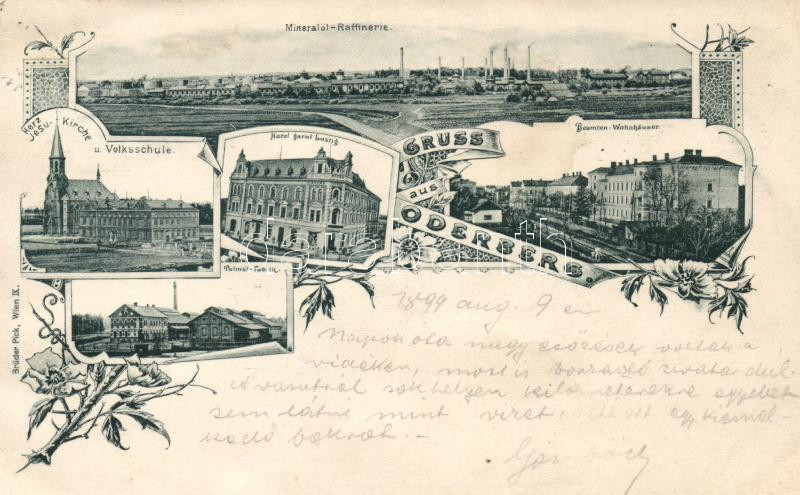 Mineralöl-Raffinerie.
Herz
Jesu-Kirche
u. Volksschule.
Hotel garni Lustig
GRUSS
aus
ODERBERG.
Beamten-Wohnhäuser.
Palmöl-Fabrik.
Brüder Pick, Wien IX.
darabanth
1899 aug. 9 én
Napok óta nagy esőzések voltak a
vidéken, most is borzasztó zivatar dúl.
A vasútról sok helyen kilométerekre egyebet
sem látni mint vizet, itt ott egy kiemel-
kedő bokrot. -